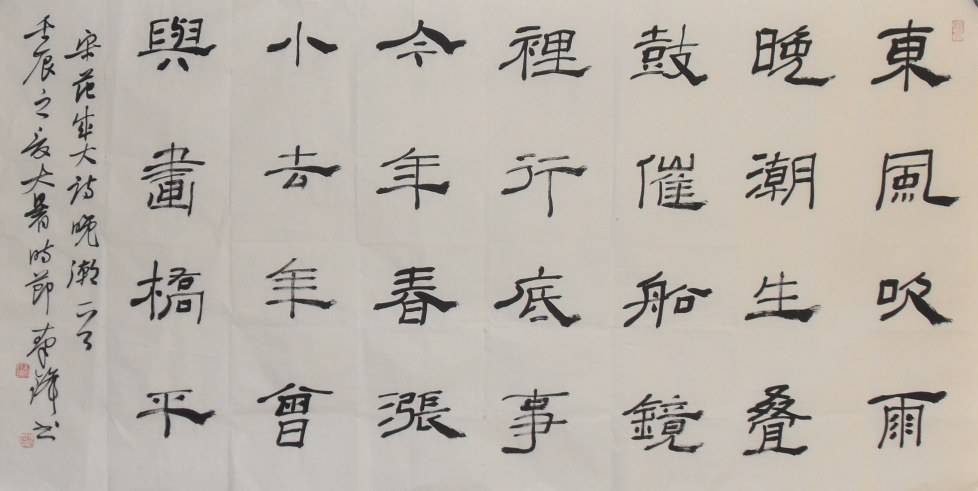 東風吹雨
晚潮生叠
鼓催船鏡
裡行底事
今年春漲
小去年曾
與畫橋平
宋范成大詩晚潮一首
壬辰之夏大暑時節春鋒书